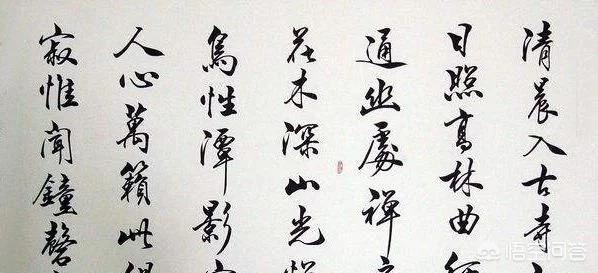 清晨入古寺
日照高林曲
通幽處禪
花木深山光
鳥性潭影
人心萬籟此
寂惟聞鐘磬
悟空问答